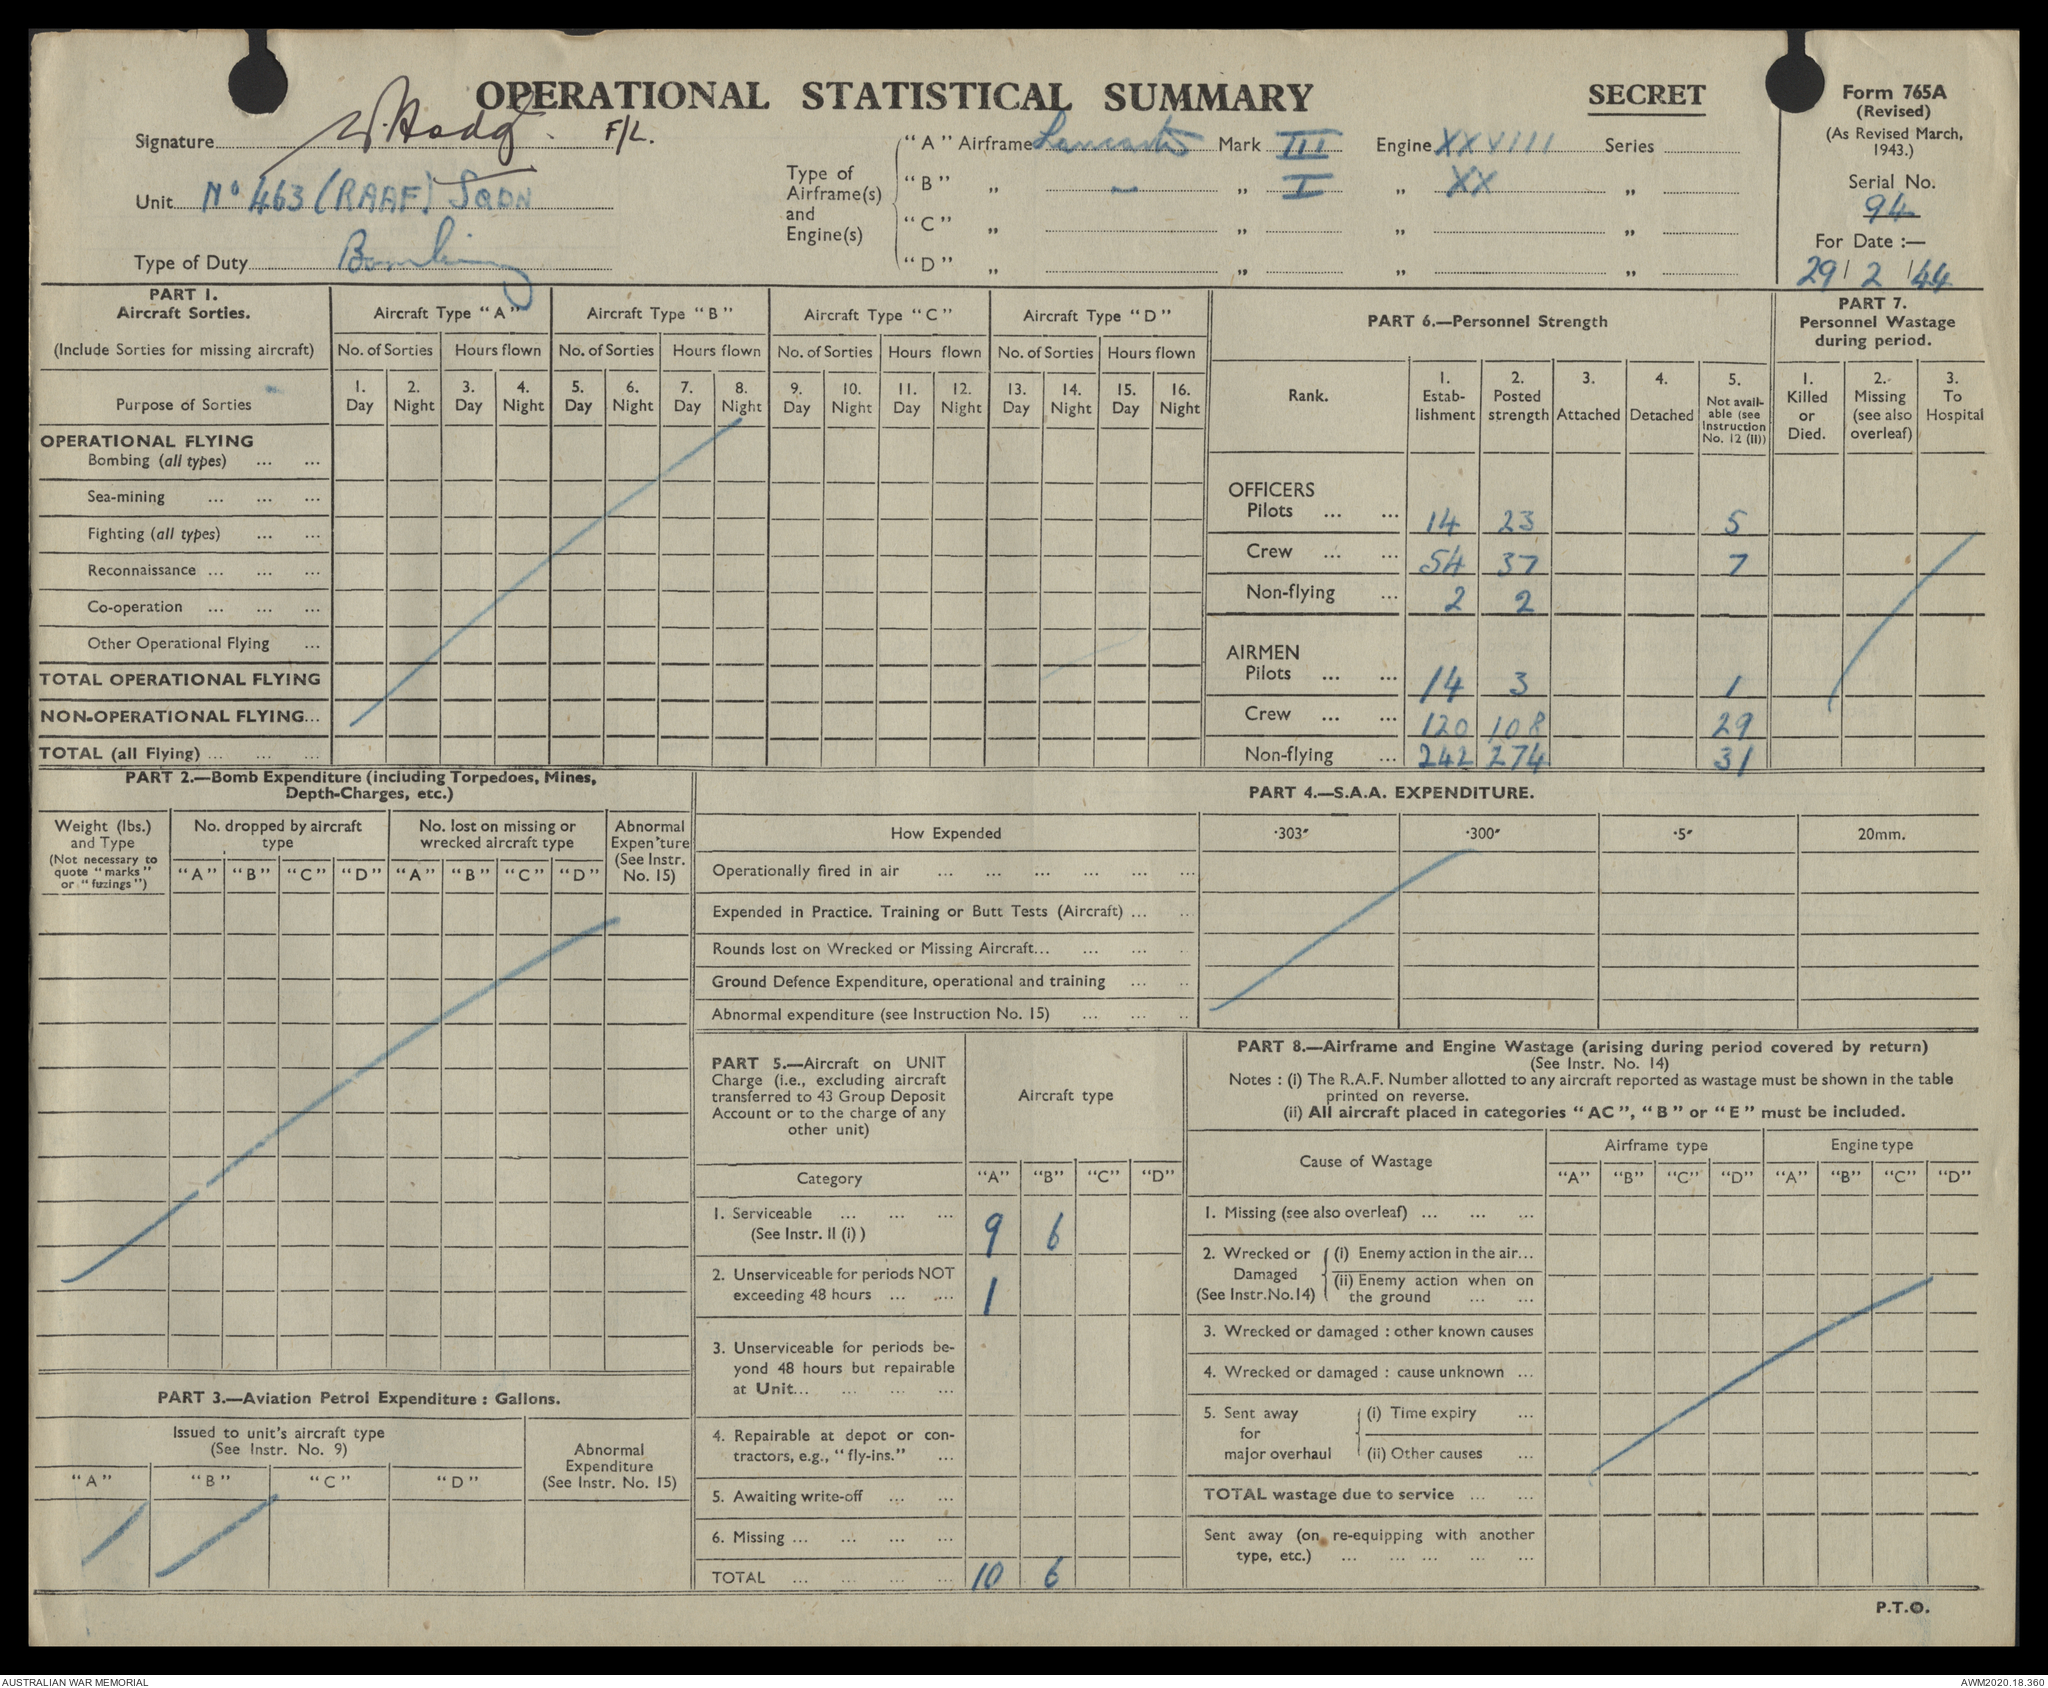 OPERATIONAL STATISTICAL SUMMARY
SECRET
Form 765A
(Revised)
(As Revised March,
1943.)
Serial No.
94
For Date :—
29 / 2 / 44
Signature F/L.
Unit No 463 (RAAF) SQDN
Type of Duty Bombing
Type of
Airframe(s)
and
Engine(s)
"A" Airframe Lancaster Mark III Engine XXVIII Series
"B" „ — „ I „ XX „
"C" „ „ „ „
"D" „ „ „ „
PART 1.
Aircraft Sorties.
(Include Sorties for missing aircraft)
Purpose of Sorties
Aircraft Type "A" Aircraft Type "B" Aircraft Type "C" Aircraft Type "D"
No. of Sorties Hours flown No. of Sorties Hours flown No. of Sorties Hours flown No. of Sorties Hours flown
1. 2. 3. 4. 5. 6. 7. 8. 9. 10. 11. 12. 13. 14. 15. 16.
Day Night Day Night Day Night Day Night Day Night Day Night Day Night Day Night
OPERATIONAL FLYING
Bombing (all types) ... ...
Sea-mining ... ... ...
Fighting (all types) ... ...
Reconnaissance ... ... ...
Co-operation ... ... ...
Other Operational Flying ...
TOTAL OPERATIONAL FLYING
NON-OPERATIONAL FLYING...
TOTAL (all Flying) ... ... ...
PART 6.—Personnel Strength
Rank.
1. Estab-lishment
2. Posted strength
3. Attached
4. Detached
5. Not avail-able (see Instruction No. 12 (II))
OFFICERS
Pilots ... ... 14 23 5
Crew ... ... 54 37 7
Non-flying ... 2 2
AIRMEN
Pilots ... ... 14 3 1
Crew ... ... 120 108 29
Non-flying ... 242 274 31
PART 7.
Personnel Wastage
during period.
1. Killed or Died.
2. Missing (see also overleaf)
3. To Hospital
PART 2.—Bomb Expenditure (including Torpedoes, Mines,
Depth-Charges, etc.)
Weight (lbs.)
and Type
(Not necessary to
quote "marks"
or "fuzings")
No. dropped by aircraft
type
No. lost on missing or
wrecked aircraft type
Abnormal
Expen'ture
(See Instr.
No. 15)
"A" "B" "C" "D" "A" "B" "C" "D"
PART 3.—Aviation Petrol Expenditure : Gallons.
Issued to unit's aircraft type
(See Instr. No. 9)
Abnormal
Expenditure
(See Instr. No. 15)
"A" "B" "C" "D"
PART 4.—S.A.A. EXPENDITURE.
How Expended ·303" ·300" ·5" 20mm.
Operationally fired in air ... ... ... ... ... ...
Expended in Practice. Training or Butt Tests (Aircraft) ... ..
Rounds lost on Wrecked or Missing Aircraft... ... ... ..
Ground Defence Expenditure, operational and training ... ..
Abnormal expenditure (see Instruction No. 15) ... ... ..
PART 5.—Aircraft on UNIT
Charge (i.e., excluding aircraft
transferred to 43 Group Deposit
Account or to the charge of any
other unit)
Aircraft type
Category "A" "B" "C" "D"
1. Serviceable ... ... ...
(See Instr. II (i) ) 9 6
2. Unserviceable for periods NOT
exceeding 48 hours ... ... 1
3. Unserviceable for periods be-
yond 48 hours but repairable
at Unit... ... ... ...
4. Repairable at depot or con-
tractors, e.g., "fly-ins." ...
5. Awaiting write-off ... ...
6. Missing ... ... ... ...
TOTAL ... ... ... ... 10 6
PART 8.—Airframe and Engine Wastage (arising during period covered by return)
(See Instr. No. 14)
Notes : (i) The R.A.F. Number allotted to any aircraft reported as wastage must be shown in the table
printed on reverse.
(ii) All aircraft placed in categories "AC", "B" or "E" must be included.
Cause of Wastage
Airframe type Engine type
"A" "B" "C" "D" "A" "B" "C" "D"
1. Missing (see also overleaf) ... ... ...
2. Wrecked or
Damaged
(See Instr.No.14)
(i) Enemy action in the air...
(ii) Enemy action when on
the ground ... ...
3. Wrecked or damaged : other known causes
4. Wrecked or damaged : cause unknown ...
5. Sent away
for
major overhaul
(i) Time expiry ...
(ii) Other causes ...
TOTAL wastage due to service ... ...
Sent away (on re-equipping with another
type, etc.) ... ... ... ... ...
P.T.O.
AUSTRALIAN WAR MEMORIAL
AWM2020.18.360